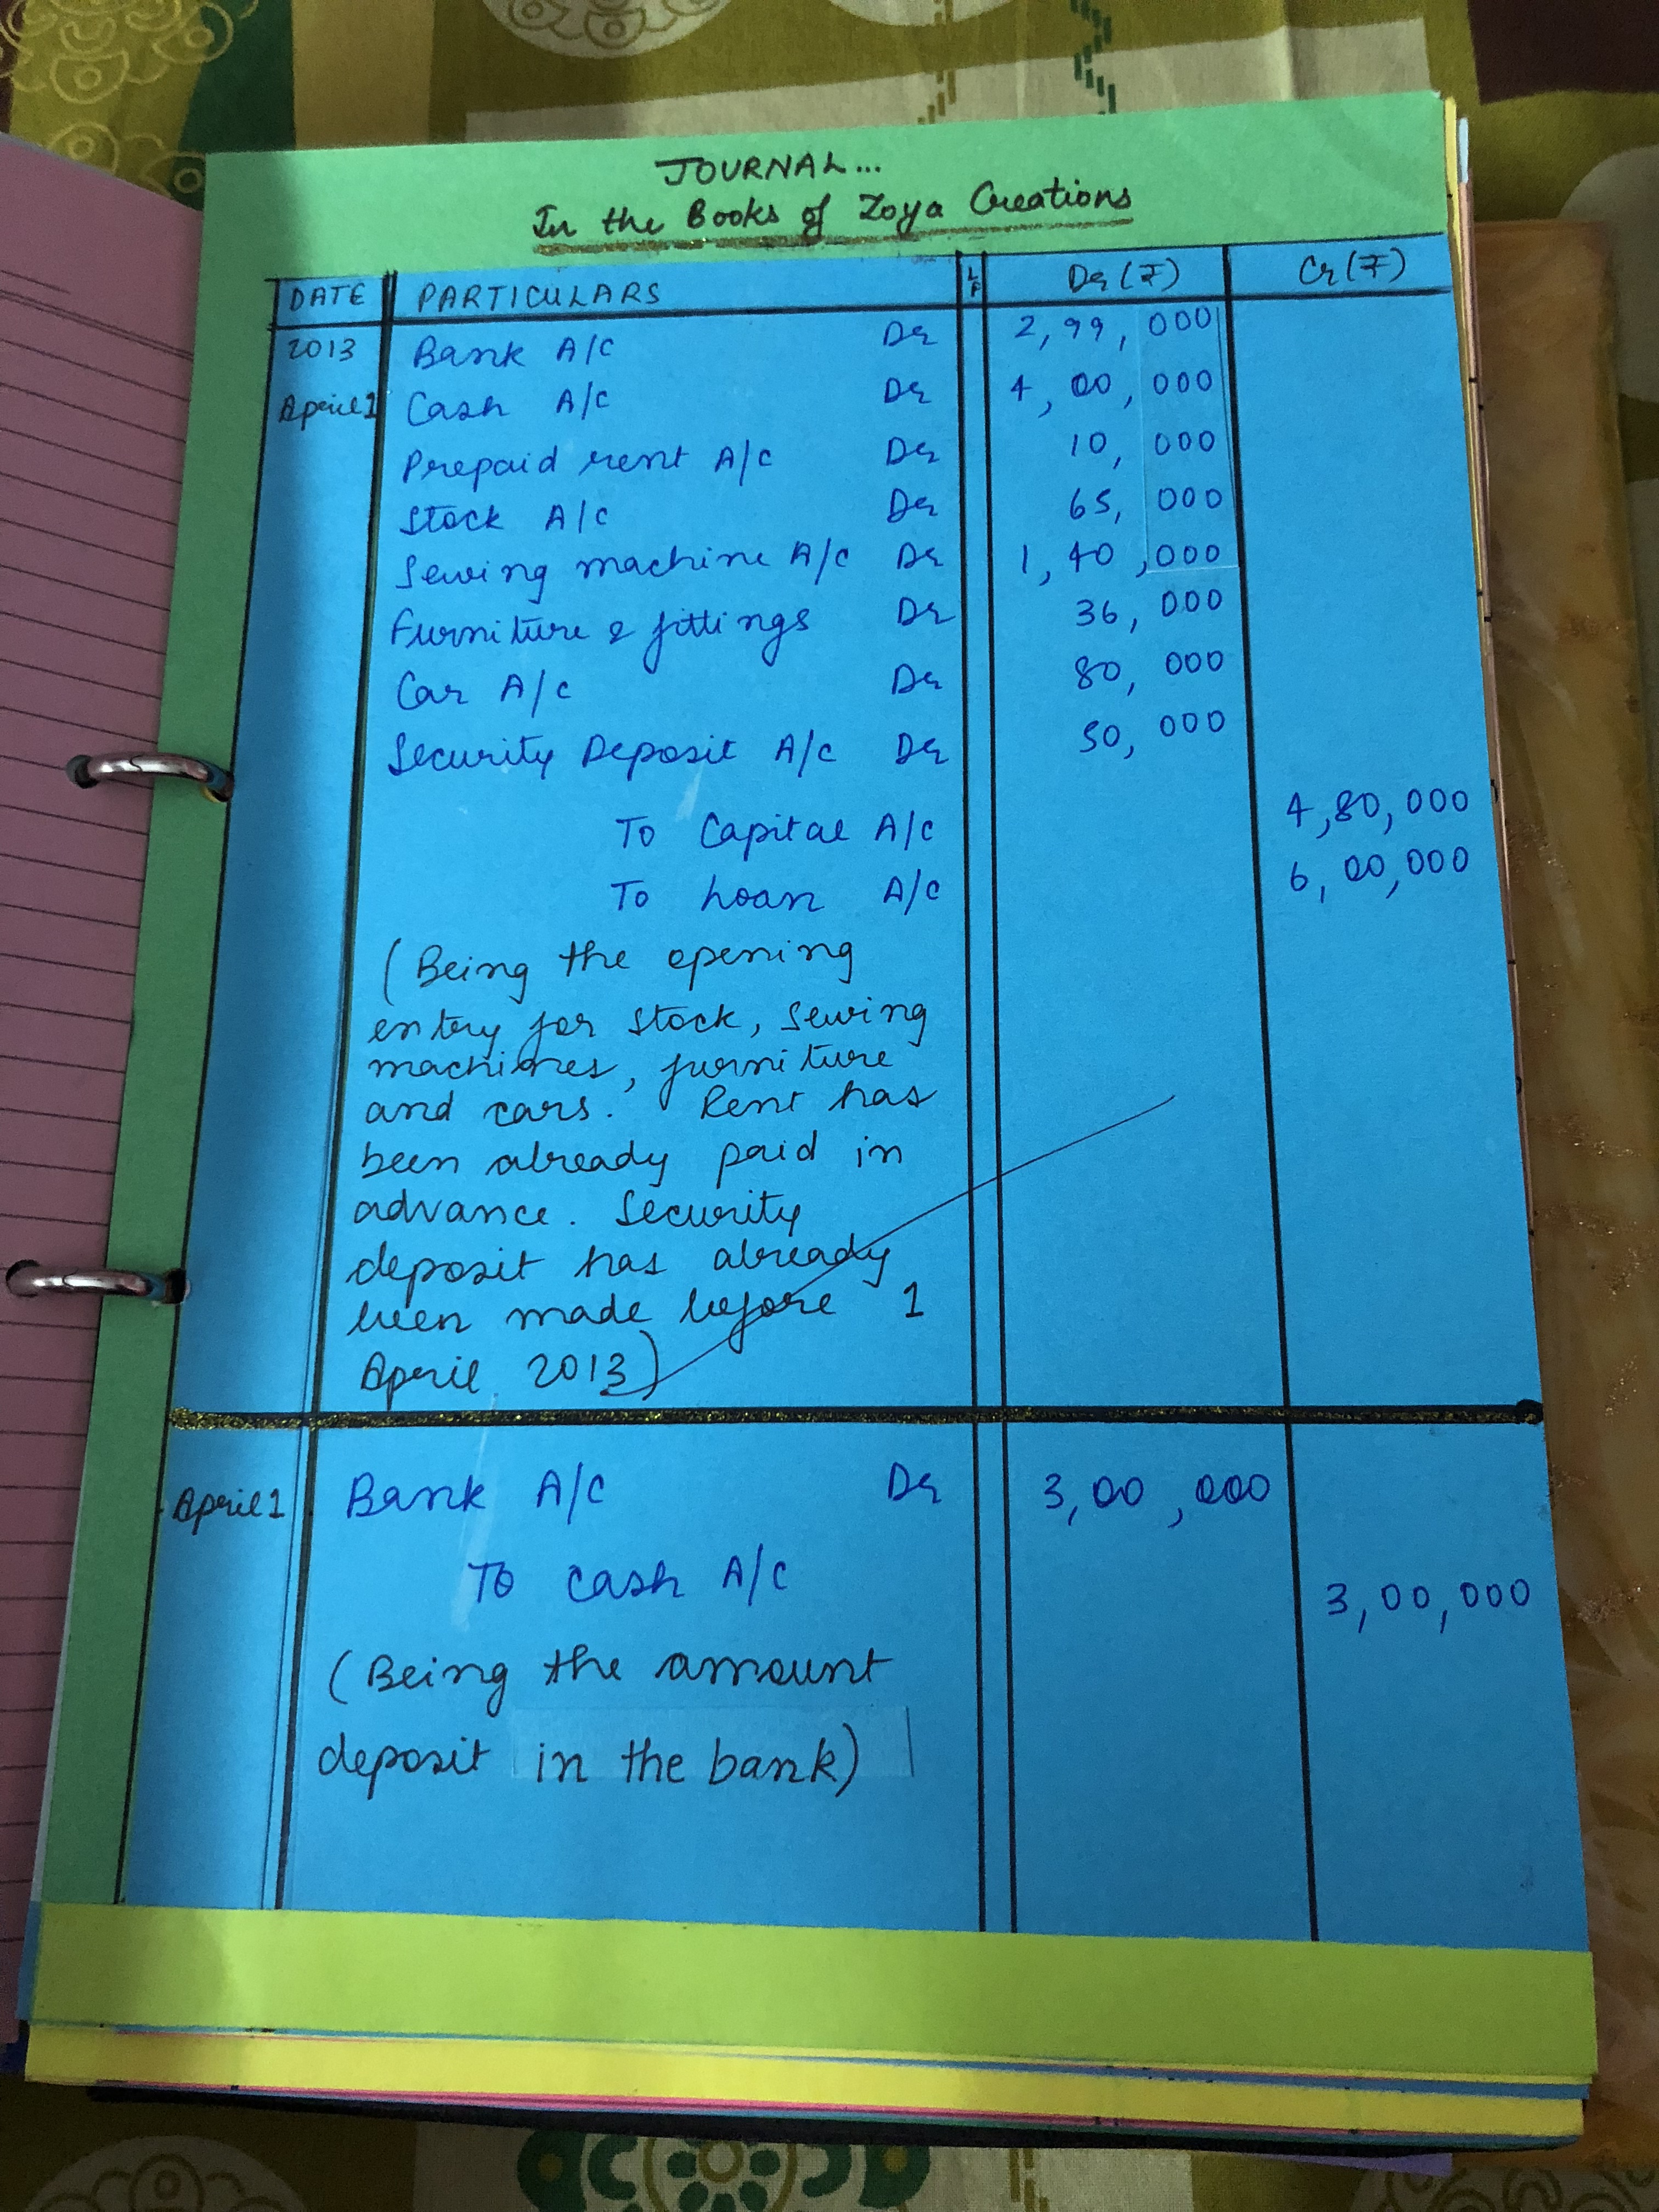 JOURNAL...
In the Books of Zoya Creations
DATE PARTICULARS LF Dr (₹) Cr (₹)
2013 Bank A/C Dr 2,99,000
April 1 Cash A/C Dr 4,00,000
Prepaid rent A/C Dr 10,000
Stock A/C Dr 65,000
Sewing machine A/C Dr 1,40,000
Furniture & fittings Dr 36,000
Car A/C Dr 80,000
Security Deposit A/C Dr 50,000
To Capital A/C 4,80,000
To Loan A/C 6,00,000
(Being the opening
entry for stock, sewing
machines, furniture
and cars. Rent has
been already paid in
advance. Security
deposit has already
been made before 1
April 2013)
April 1 Bank A/C Dr 3,00,000
To cash A/C 3,00,000
(Being the amount
deposit in the bank)